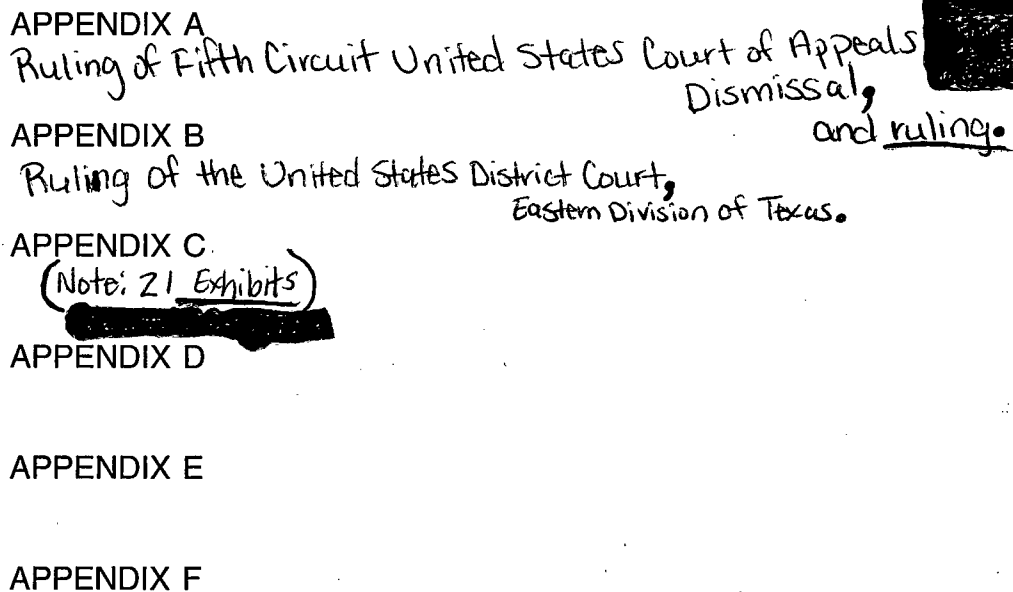 APPENDIX A
Ruling of Fifth Circuit United States Court of Appeals
Dismissal,
and ruling.
APPENDIX B
Ruling of the United States District Court,
Eastern Division of Texas.
APPENDIX C
(Note: 21 Exhibits)
APPENDIX D
APPENDIX E
APPENDIX F